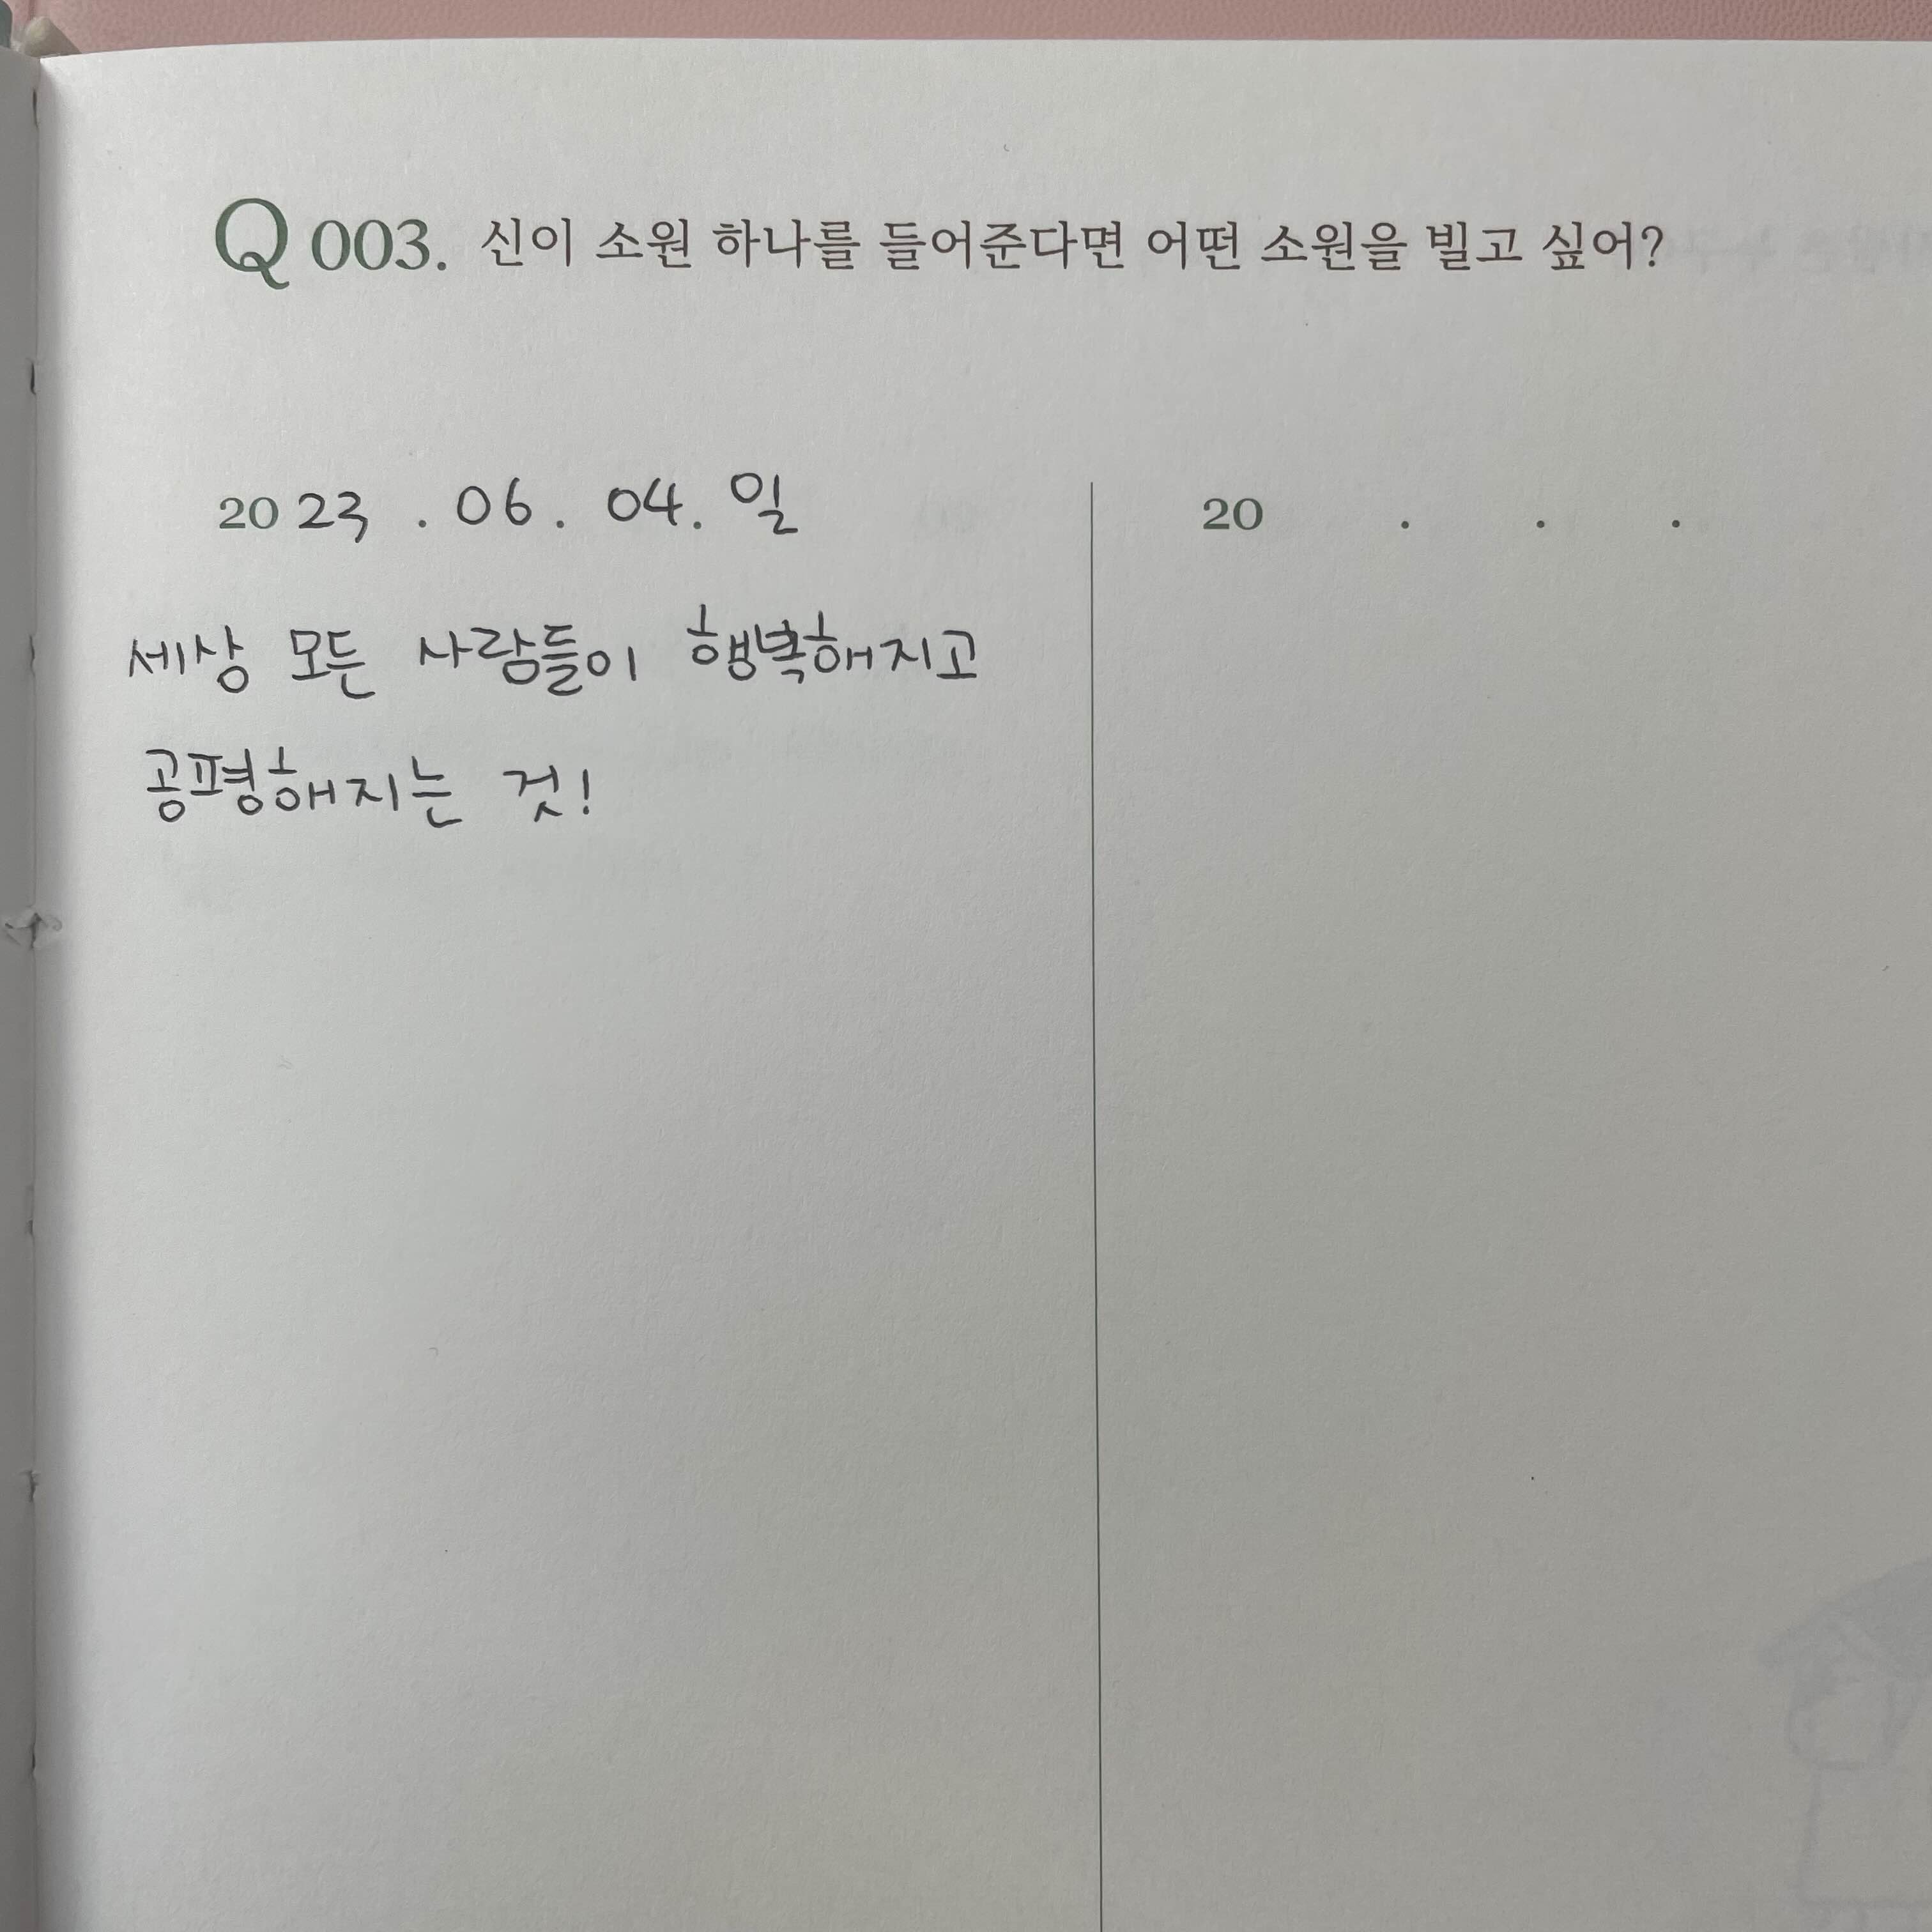 Q 003. 신이 소원 하나를 들어준다면 어떤 소원을 빌고 싶어?
2023 . 06 . 04. 일
세상 모든 사람들이 행복해지고
공평해지는 것!
20 . . .